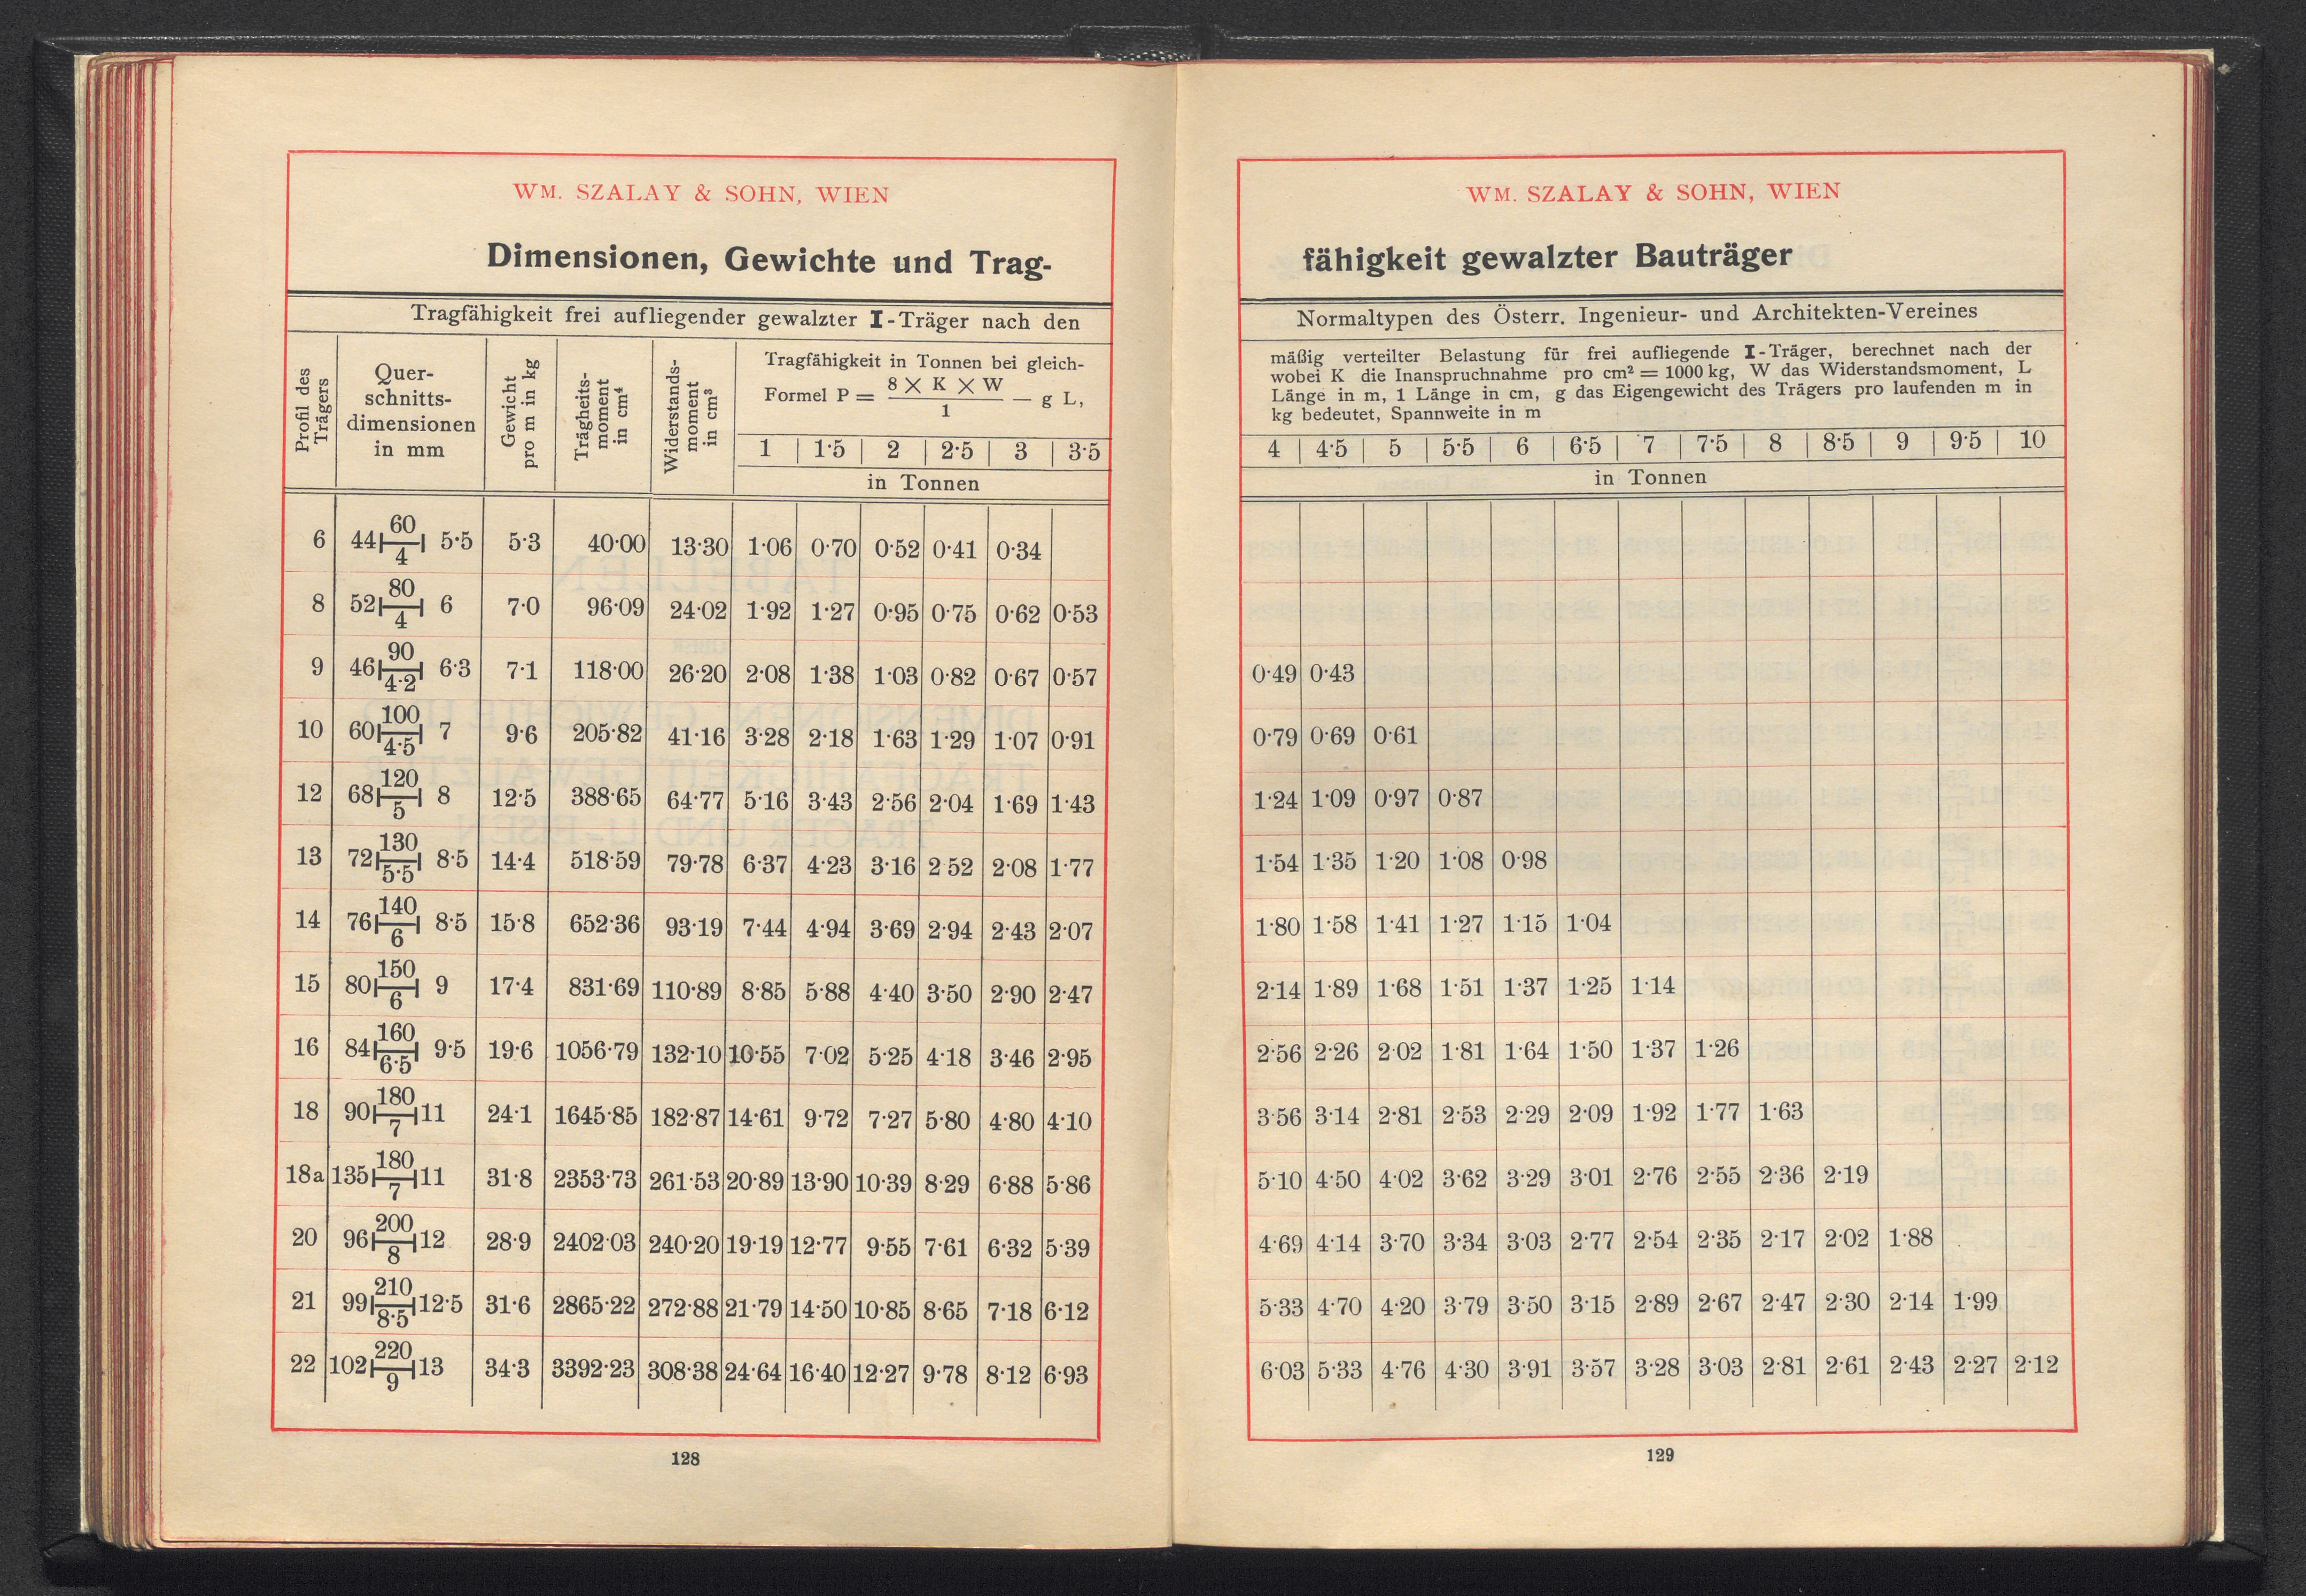 WM. SZALAY & SOHN, WIEN
Dimensionen, Gewichte und Trag-
Tragfähigkeit frei aufliegender gewalzter I-Träger nach den
Profil des Trägers
Quer-
schnitts-
dimensionen
in mm
Gewicht pro m in kg
Trägheits-
moment
in cm⁴
Widerstands-
moment
in cm³
Tragfähigkeit in Tonnen bei gleich-
Formel P = 8 × K × W / 1 — g L,
1 | 1·5 | 2 | 2·5 | 3 | 3·5
in Tonnen
6 44 60 4 5·5 5·3 40·00 13·30 1·06 0·70 0·52 0·41 0·34
8 52 80 4 6 7·0 96·09 24·02 1·92 1·27 0·95 0·75 0·62 0·53
9 46 90 4·2 6·3 7·1 118·00 26·20 2·08 1·38 1·03 0·82 0·67 0·57
10 60 100 4·5 7 9·6 205·82 41·16 3·28 2·18 1·63 1·29 1·07 0·91
12 68 120 5 8 12·5 388·65 64·77 5·16 3·43 2·56 2·04 1·69 1·43
13 72 130 5·5 8·5 14·4 518·59 79·78 6·37 4·23 3·16 2 52 2·08 1·77
14 76 140 6 8·5 15·8 652·36 93·19 7·44 4·94 3·69 2·94 2·43 2·07
15 80 150 6 9 17·4 831·69 110·89 8·85 5·88 4·40 3·50 2·90 2·47
16 84 160 6·5 9·5 19·6 1056·79 132·10 10·55 7·02 5·25 4·18 3·46 2·95
18 90 180 7 11 24·1 1645·85 182·87 14·61 9·72 7·27 5·80 4·80 4·10
18a 135 180 7 11 31·8 2353·73 261·53 20·89 13·90 10·39 8·29 6·88 5·86
20 96 200 8 12 28·9 2402·03 240·20 19·19 12·77 9·55 7·61 6·32 5·39
21 99 210 8·5 12·5 31·6 2865·22 272·88 21·79 14·50 10·85 8·65 7·18 6·12
22 102 220 9 13 34·3 3392·23 308·38 24·64 16·40 12·27 9·78 8·12 6·93
128
WM. SZALAY & SOHN, WIEN
fähigkeit gewalzter Bauträger
Normaltypen des Österr. Ingenieur- und Architekten-Vereines
mäßig verteilter Belastung für frei aufliegende I-Träger, berechnet nach der
wobei K die Inanspruchnahme pro cm² = 1000 kg, W das Widerstandsmoment, L
Länge in m, 1 Länge in cm, g das Eigengewicht des Trägers pro laufenden m in
kg bedeutet, Spannweite in m
4 | 4·5 | 5 | 5·5 | 6 | 6·5 | 7 | 7·5 | 8 | 8·5 | 9 | 9·5 | 10
in Tonnen
0·49 0·43
0·79 0·69 0·61
1·24 1·09 0·97 0·87
1·54 1·35 1·20 1·08 0·98
1·80 1·58 1·41 1·27 1·15 1·04
2·14 1·89 1·68 1·51 1·37 1·25 1·14
2·56 2·26 2·02 1·81 1·64 1·50 1·37 1·26
3·56 3·14 2·81 2·53 2·29 2·09 1·92 1·77 1·63
5·10 4·50 4·02 3·62 3·29 3·01 2·76 2·55 2·36 2·19
4·69 4·14 3·70 3·34 3·03 2·77 2·54 2·35 2·17 2·02 1·88
5·33 4·70 4·20 3·79 3·50 3·15 2·89 2·67 2·47 2·30 2·14 1·99
6·03 5·33 4·76 4·30 3·91 3·57 3·28 3·03 2·81 2·61 2·43 2·27 2·12
129